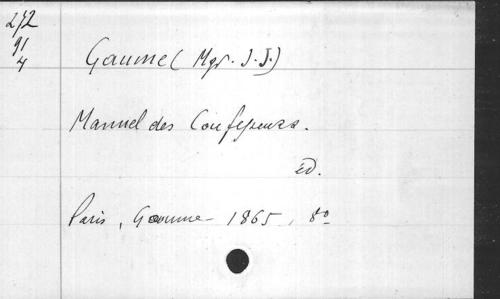 242
91
4
Gaume (Mgr. J. J.)
Manuel des Confesseurs.
Ed.
Paris, Gaume - 1865, 8o